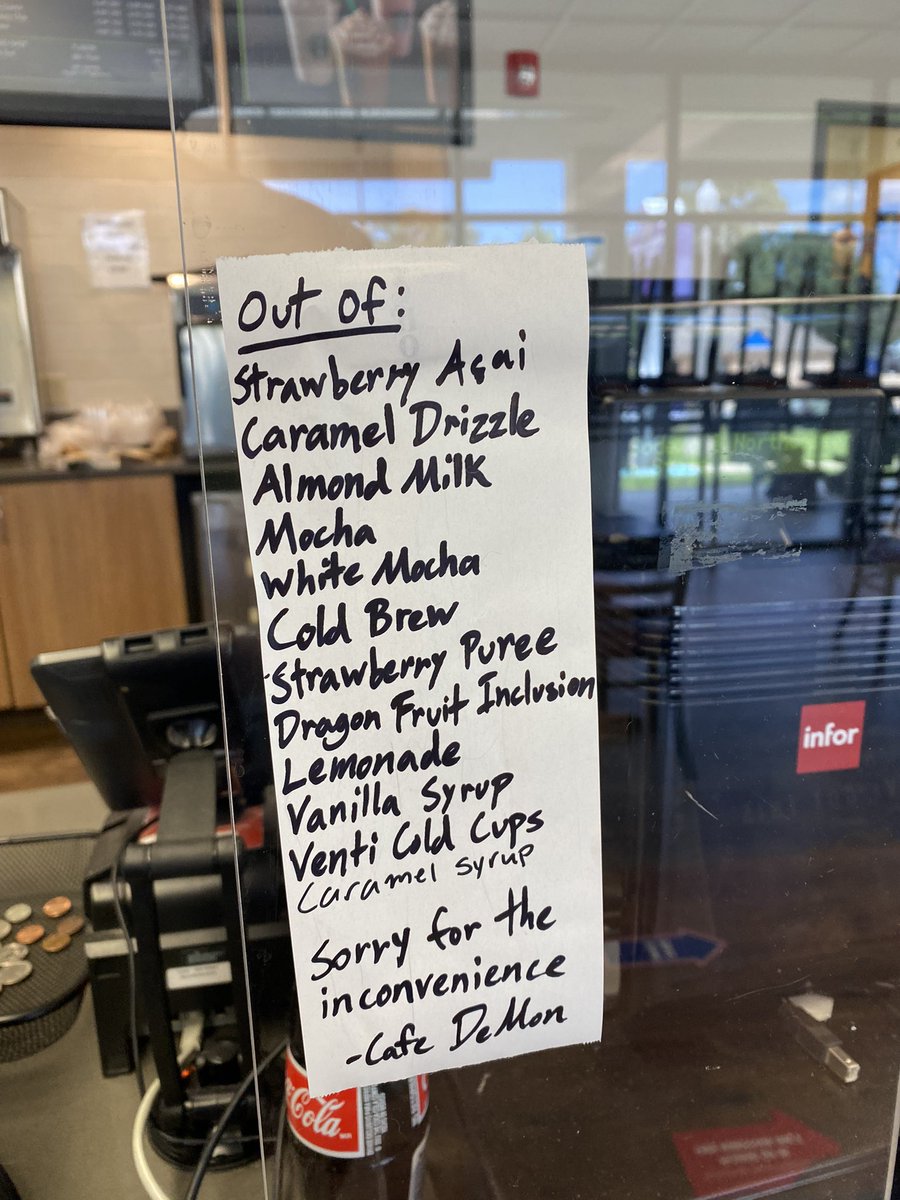 Out of:
Strawberry Açai
Caramel Drizzle
Almond Milk
Mocha
White Mocha
Cold Brew
Strawberry Puree
Dragon Fruit Inclusion
Lemonade
Vanilla Syrup
Venti Cold Cups
Caramel syrup
Sorry for the
inconvenience
-Cafe DeMon
infor
Coca-Cola